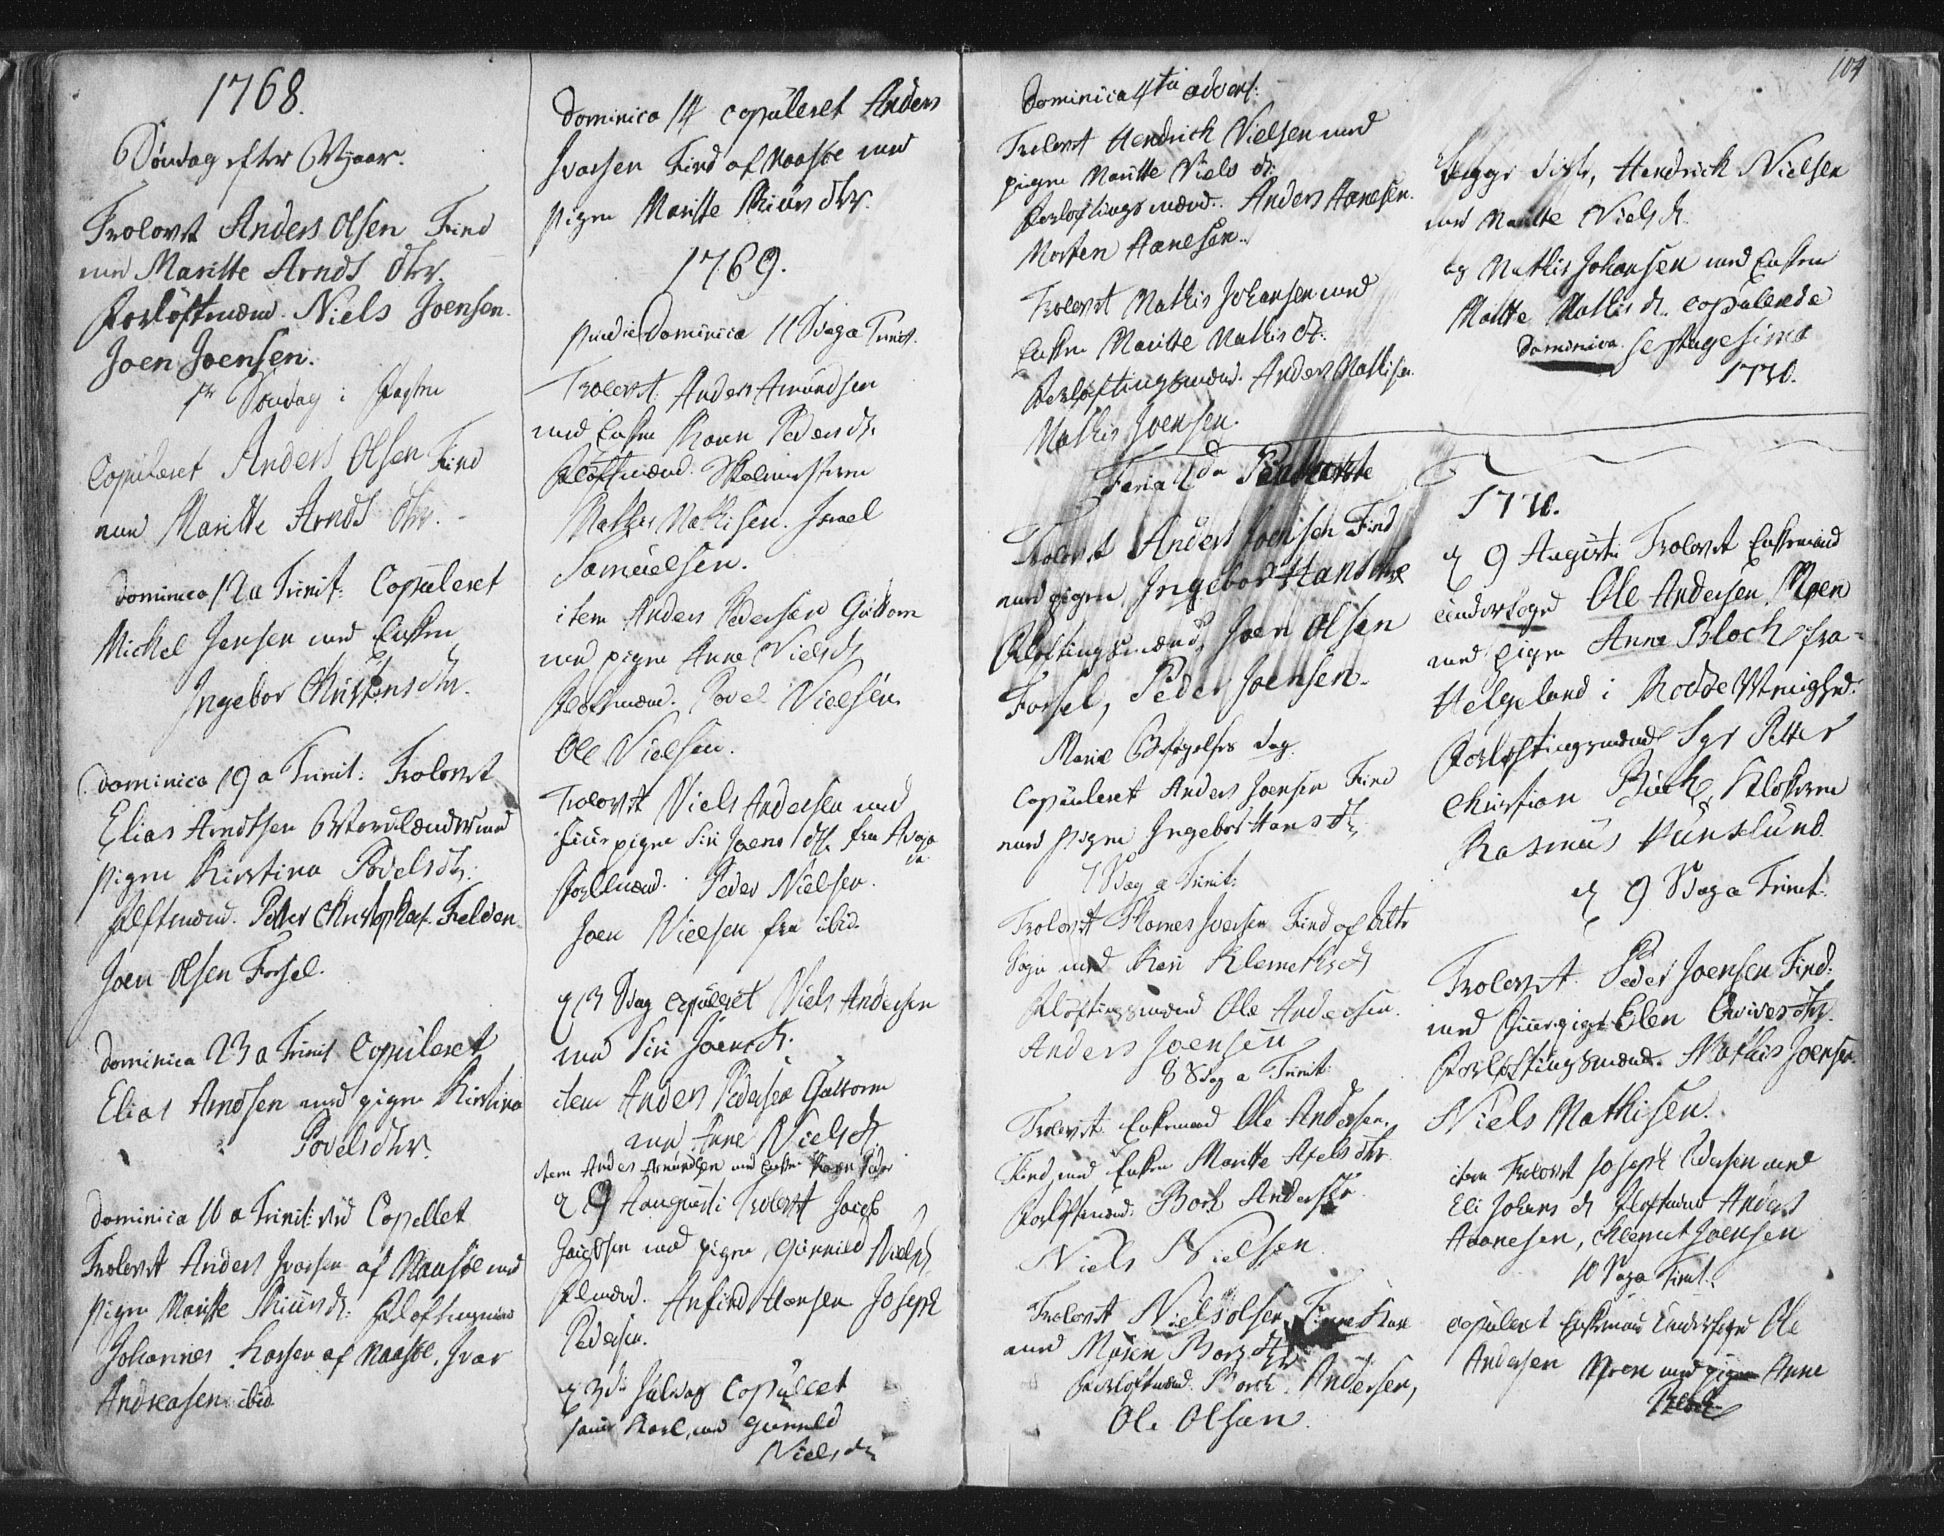 1768.
Søndag efter Nyaar.
Trolovet Anders Olsen Find
med Maritte Arnds dtr.
Forløftmænd. Niels Joensen.
Joen Joensen.
Søndag i fasten
Copuleret Anders Olsen Find
med Maritte Arnds dtr.
Dominica 12 a Trinit: Copuleret
Michel Jensen med Enken
Ingebor Christens dtr.
Dominica 19 a Trinit: Trolovet
Elias Arndtsen med
pigen Kirstina Povels dtr.
Peter Christophers. Feldon.
Joen Olsen Forsel.
Dominica 23 a Trinit Copuleret
Elias Arndsen med pigen Kirstina
Povels dtr.
Dominica 10 a Trinit: ved Capellet
Trolovet Anders Ivarsen af Maasøe med
pigen Maritte dr.
Johannes Larsen af Maasøe. Ivar
Andreasen ibid
Dominica 14 copuleret Anders
Ivarsen Find af Maasøe med
pigen Maritte dtr.
1769.
Dominica 11 Trinit.
Trolovet Anders Amundsen
med Enken Karen Peders dr.
Mathis Mathisen. Israel
Samuelsen.
item Anders Pedersen Guttorm
med pigen Anne Niels dr
Povel Nielsen.
Ole Nielsen.
Trolovet Niels Andersen med
pigen Siri Joens dtr fra
Peder Nielsen.
Joen Nielsen fra ibid
copuleret Niels Andersen
med Siri Joens dr.
item Anders Pedersen Guttorm
med Anne Niels dr.
item Anders Amundsen med Enken Karen Peder
9 Augusti Trolovet Jacob
Jacobsen med pigen, Gunnild Niels dr
Anfind Hansen Joseph
Pedersen.
Juledag Copuleret
samme Karl, med Gunnild
Niels dr
104
Dominica 4ta advent:
Trolovet Hendrich Nielsen med
pigen Maritte Niels dr.
Forløftingsmænd. Anders Aanesen.
Morten Aanesen.
Trolovet Mathis Johansen med
Enken Maritte Mathis dr.
Forløftingsmænd. Anders Mathisen
Mathis Joensen.
Feria 2da Pentecoste
Trolovet Anders Joensen Find
med pigen Ingebor Hans dtr
Forløftingsmænd Joen Olsen
Forsel, Peder Joensen.
Mariæ Besøgelses dag.
Copuleret Anders Joensen Find
med pigen Ingebor Hans dr.
7 Sdag a Trinit:
Trolovet Thomes Iversen Find af
Sogn med Kari Klemets dr
Forløftingsmænd Ole Andersen.
Anders Joensen
8 Sdag a Trinit:
Trolovet Enkemand Ole Andersen,
Find med Enken Maritte Axels dtr
Forløftmænd. Bork Andersen.
Niels Nielsen.
Trolovet Niels Olsen
med Maren Borg dtr
Forløftmænd. Borch Andersen,
Ole Olsen.
begge siste, Hendrich Nielsen
med Maritte Niels dr.
og Mathis Johansen med Enken
Maritte Mathis dr. copulerede
Dominica septuagesima
1770.
1770.
d 9 Augusti Trolovet Enkemand
Ole Andersen Moen
med pigen Anne Bloch fra
Helgeland i Rødøe Menighed.
Forløftingsmænd Sgr Petter
Christian Buch, Klokkeren
Rasmus
d 9 Sdag a Trinit:
Trolovet Peder Joensen Find:
med Elen dtr.
Forløftingsmænd. Mathis Joensen.
Niels Mathisen.
item Trolovet Joseph Pedersen med
Eli Johans dr Anders
Aanesen, Klemet Joensen
10 Sdag Trinit:
copuleret Enkemand Ole
Andersen Moen med pigen Anne
Bloch